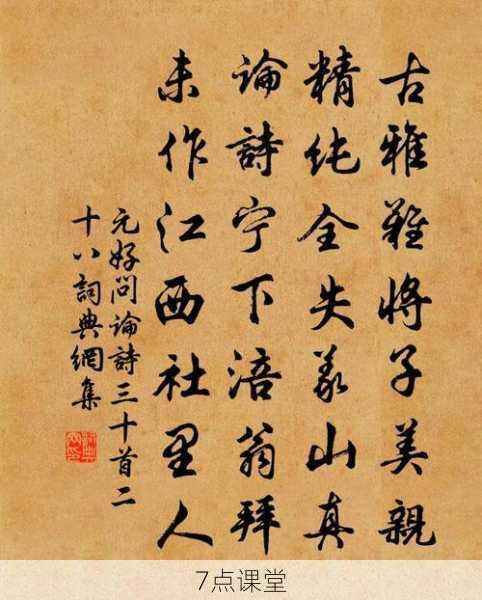 古雅難將子美親
精純全失義山真
論詩宁下涪翁拜
未作江西社里人
元好问論詩三十首二
十八詞典網集
7点课堂